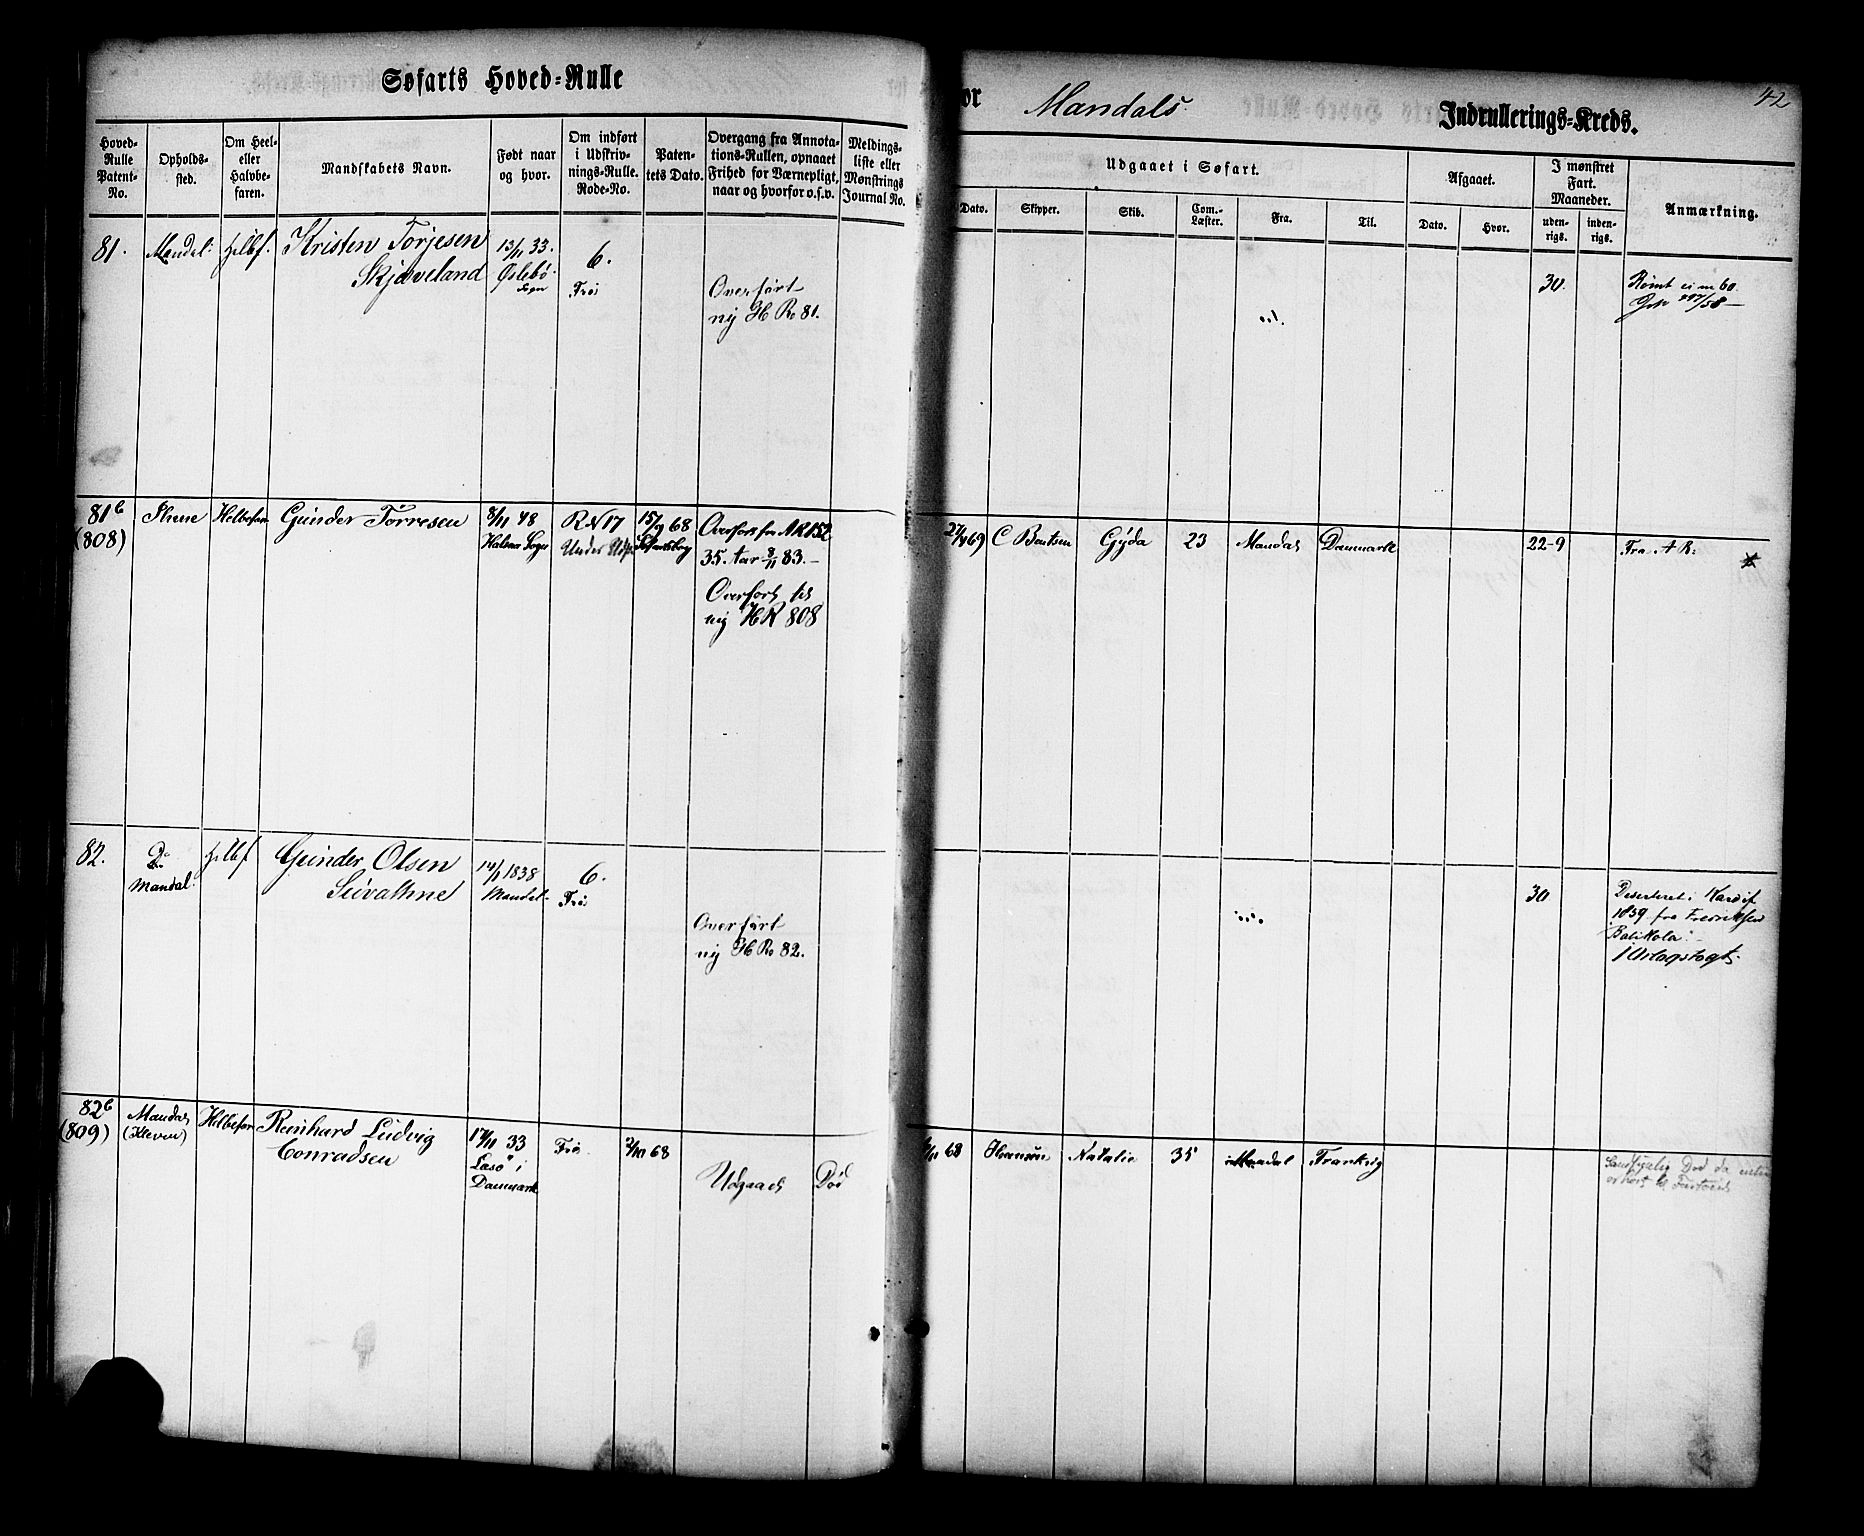 Søfarts Hoved-Rulle
for Mandals Indrullerings-Kreds.
42
Hoved-Rulle Patent-No.
Opholds-sted.
Om Heel- eller Halvbe-faren.
Mandskabets Navn.
Født naar og hvor.
Om indført i Udskriv-nings-Rulle. Rode-No.
Paten-tets Dato.
Overgang fra Annota-tions-Rullen, opnaaet Frihed for Værnepligt, naar og hvorfor o.s.v.
Meldings-liste eller Mønstrings Journal No.
Udgaaet i Søfart.
Dato.
Skipper.
Skib.
Com.-Læster.
Fra.
Til.
Afgaaet.
Dato.
Hvor.
I mønstret Fart. Maaneder.
uden-rigs.
inden-rigs.
Anmærkning.
81.
Mandal.
Helbf.
Kristen Torjesen
Skjæveland
13/11 33.
Oslebö
Sogn
6.
Fröi
Overfört
ny H Ro 81.
30.
Rømt
81b
(808)
Helbefaren
Gunder Torresen
8/11 48
Halsaa Sogn
R N 17
15/9 68
Overfort fra A R 152
35. Aar 8/11 83.-
Overfort til
ny H R 808
27/4 69
C Bentsen
Gyda
23
Mandal
Danmark
22-9
Fra A R:
82.
Do
Mandal.
Helbf
Gunder Olsen
14/1 1838
Mandal.
6.
Fröi
Overfört
ny H Ro 82.
30
Deserteret i Kardif
1859 fra
1 Orlogstogt.
82b
(809)
Mandal
(Kleven)
Helbefaren
Reinhard Ludvig
Conradsen
17/11 33
Lasö i
Danmark
Fri
2/10 68
Udgaaet
Död
68
Natalie
35
Mandal
Frankrig
Sandsynlig Död da intet